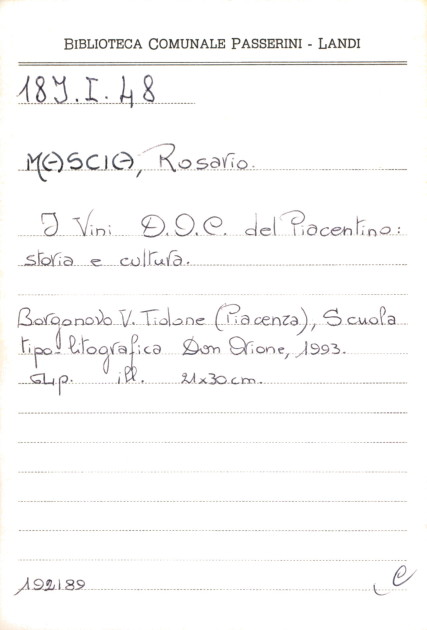 BIBLIOTECA COMUNALE PASSERINI - LANDI
18J.I.48
MASCIA, Rosario.
I Vini D.O.C. del Piacentino:
storia e cultura.
Borgonovo V. Tidone (Piacenza), Scuola
tipo-litografica Don Orione, 1993.
64p. ill. 21x30cm.
192189
C